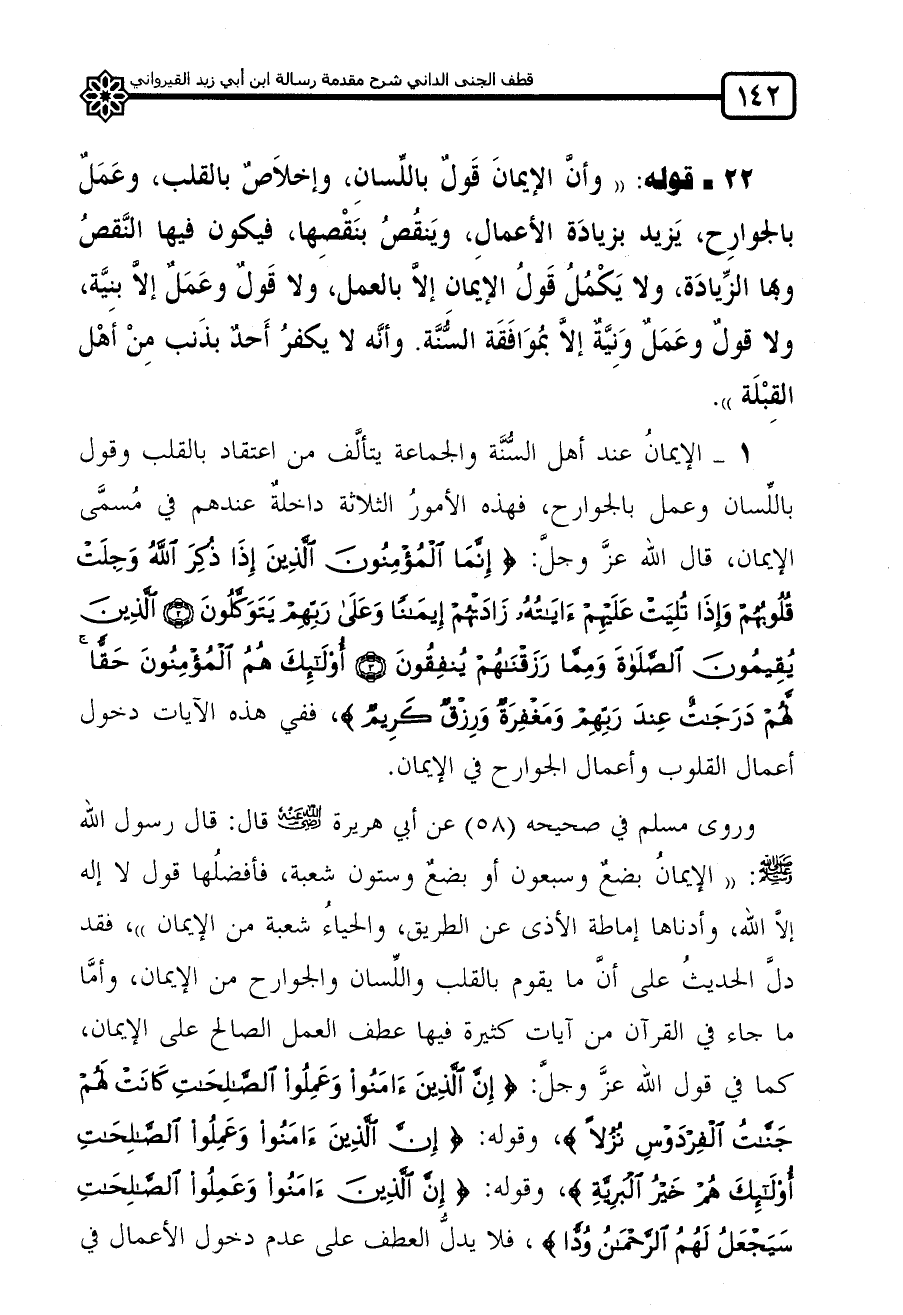 قطف الجنى الداني شرح مقدمة رسالة ابن أبي زيد القيرواني
١٤٢
٢٢ ـ قوله: (( وأنَّ الإيمانَ قَولٌ باللِّسانِ، وإخلاَصٌ بالقلب، وعَمَلٌ
بالجوارِح، يَزيد بزيادَة الأعمالِ، ويَنقُصُ بنَقْصِها، فيكون فيها النَّقصُ
وبها الزِّيادَة، ولا يَكْمُلُ قَولُ الإيمانِ إلاَّ بالعمل، ولا قَولٌ وعَمَلٌ إلاَّ بنِيَّة،
ولا قولٌ وعَمَلٌ وَنِيَّةٌ إلاَّ بمُوَافَقَة السُّنَّة. وأنَّه لا يكفرُ أَحدٌ بذَنب مِنْ أهْل
القِبْلَة )).
١ ـ الإيمانُ عند أهل السُّنَّة والجماعة يتألَّف من اعتقاد بالقلب وقول
باللِّسان وعمل بالجوارح، فهذه الأمورُ الثلاثة داخلةٌ عندهم في مُسمَّى
الإيمان، قال الله عزَّ وجلَّ: ﴿ إِنَّمَا ٱلْمُؤْمِنُونَ ٱلَّذِينَ إِذَا ذُكِرَ ٱللَّهُ وَجِلَتْ
قُلُوبُهُمْ وَإِذَا تُلِيَتْ عَلَيْهِمْ ءَايَـٰتُهُۥ زَادَتْهُمْ إِيمَـٰنًا وَعَلَىٰ رَبِّهِمْ يَتَوَكَّلُونَ ۝٢ ٱلَّذِينَ
يُقِيمُونَ ٱلصَّلَوٰةَ وَمِمَّا رَزَقْنَـٰهُمْ يُنفِقُونَ ۝٣ أُوْلَـٰٓئِكَ هُمُ ٱلْمُؤْمِنُونَ حَقًّا ۚ
لَّهُمْ دَرَجَـٰتٌ عِندَ رَبِّهِمْ وَمَغْفِرَةٌ وَرِزْقٌ كَرِيمٌ ﴾، ففي هذه الآيات دخول
أعمال القلوب وأعمال الجوارح في الإيمان.
وروى مسلم في صحيحه (٥٨) عن أبي هريرة رضي الله عنه قال: قال رسول الله
ﷺ: (( الإيمانُ بضعٌ وسبعون أو بضعٌ وستون شعبة، فأفضلُها قول لا إله
إلاَّ الله، وأدناها إماطة الأذى عن الطريق، والحياءُ شعبة من الإيمان ))، فقد
دلَّ الحديثُ على أنَّ ما يقوم بالقلب واللِّسان والجوارح من الإيمان، وأمَّا
ما جاء في القرآن من آيات كثيرة فيها عطف العمل الصالح على الإيمان،
كما في قول الله عزَّ وجلَّ: ﴿ إِنَّ ٱلَّذِينَ ءَامَنُوا۟ وَعَمِلُوا۟ ٱلصَّـٰلِحَـٰتِ كَانَتْ لَهُمْ
جَنَّـٰتُ ٱلْفِرْدَوْسِ نُزُلاً ﴾، وقوله: ﴿ إِنَّ ٱلَّذِينَ ءَامَنُوا۟ وَعَمِلُوا۟ ٱلصَّـٰلِحَـٰتِ
أُوْلَـٰٓئِكَ هُمْ خَيْرُ ٱلْبَرِيَّةِ ﴾، وقوله: ﴿ إِنَّ ٱلَّذِينَ ءَامَنُوا۟ وَعَمِلُوا۟ ٱلصَّـٰلِحَـٰتِ
سَيَجْعَلُ لَهُمُ ٱلرَّحْمَـٰنُ وُدًّا ﴾، فلا يدلُّ العطف على عدم دخول الأعمال في